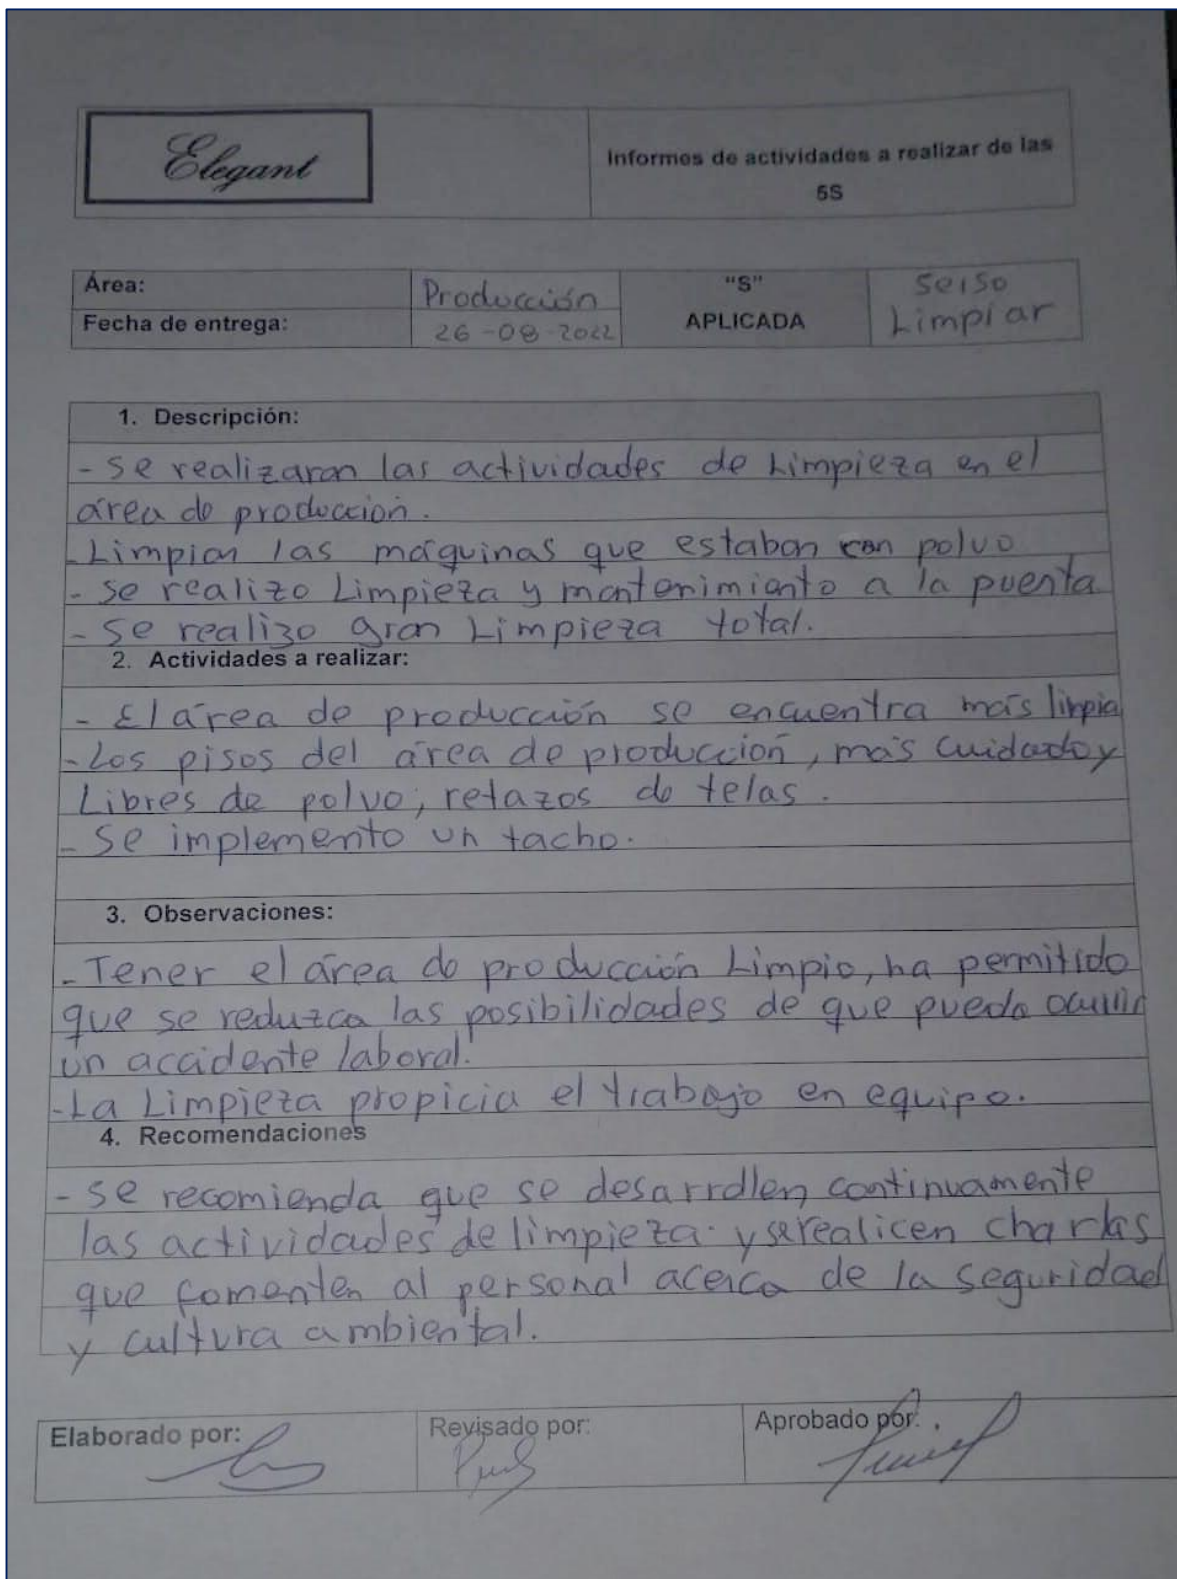 Elegant
Informes de actividades a realizar de las
5S
Área:
Producción
"S"
APLICADA
Seiso
Limpiar
Fecha de entrega:
26-08-2022
1. Descripción:
- Se realizaron las actividades de Limpieza en el
área de producción.
- Limpian las máquinas que estaban con polvo
- Se realizo Limpieza y mantenimiento a la puenta
- Se realizo gran Limpieza total.
2. Actividades a realizar:
- El área de producción se encuentra más limpia
- Los pisos del área de producción, más cuidado y
Libres de polvo, retazos de telas.
- Se implemento un tacho.
3. Observaciones:
- Tener el área de producción Limpio, ha permitido
que se reduzca las posibilidades de que pueda
un accidente laboral.
- La Limpieza propicia el trabajo en equipo.
4. Recomendaciones
- Se recomienda que se desarrollen continuamente
las actividades de limpieza y se realicen charlas
que fomenten al personal acerca de la seguridad
y cultura ambiental.
Elaborado por:
Revisado por:
Aprobado por: